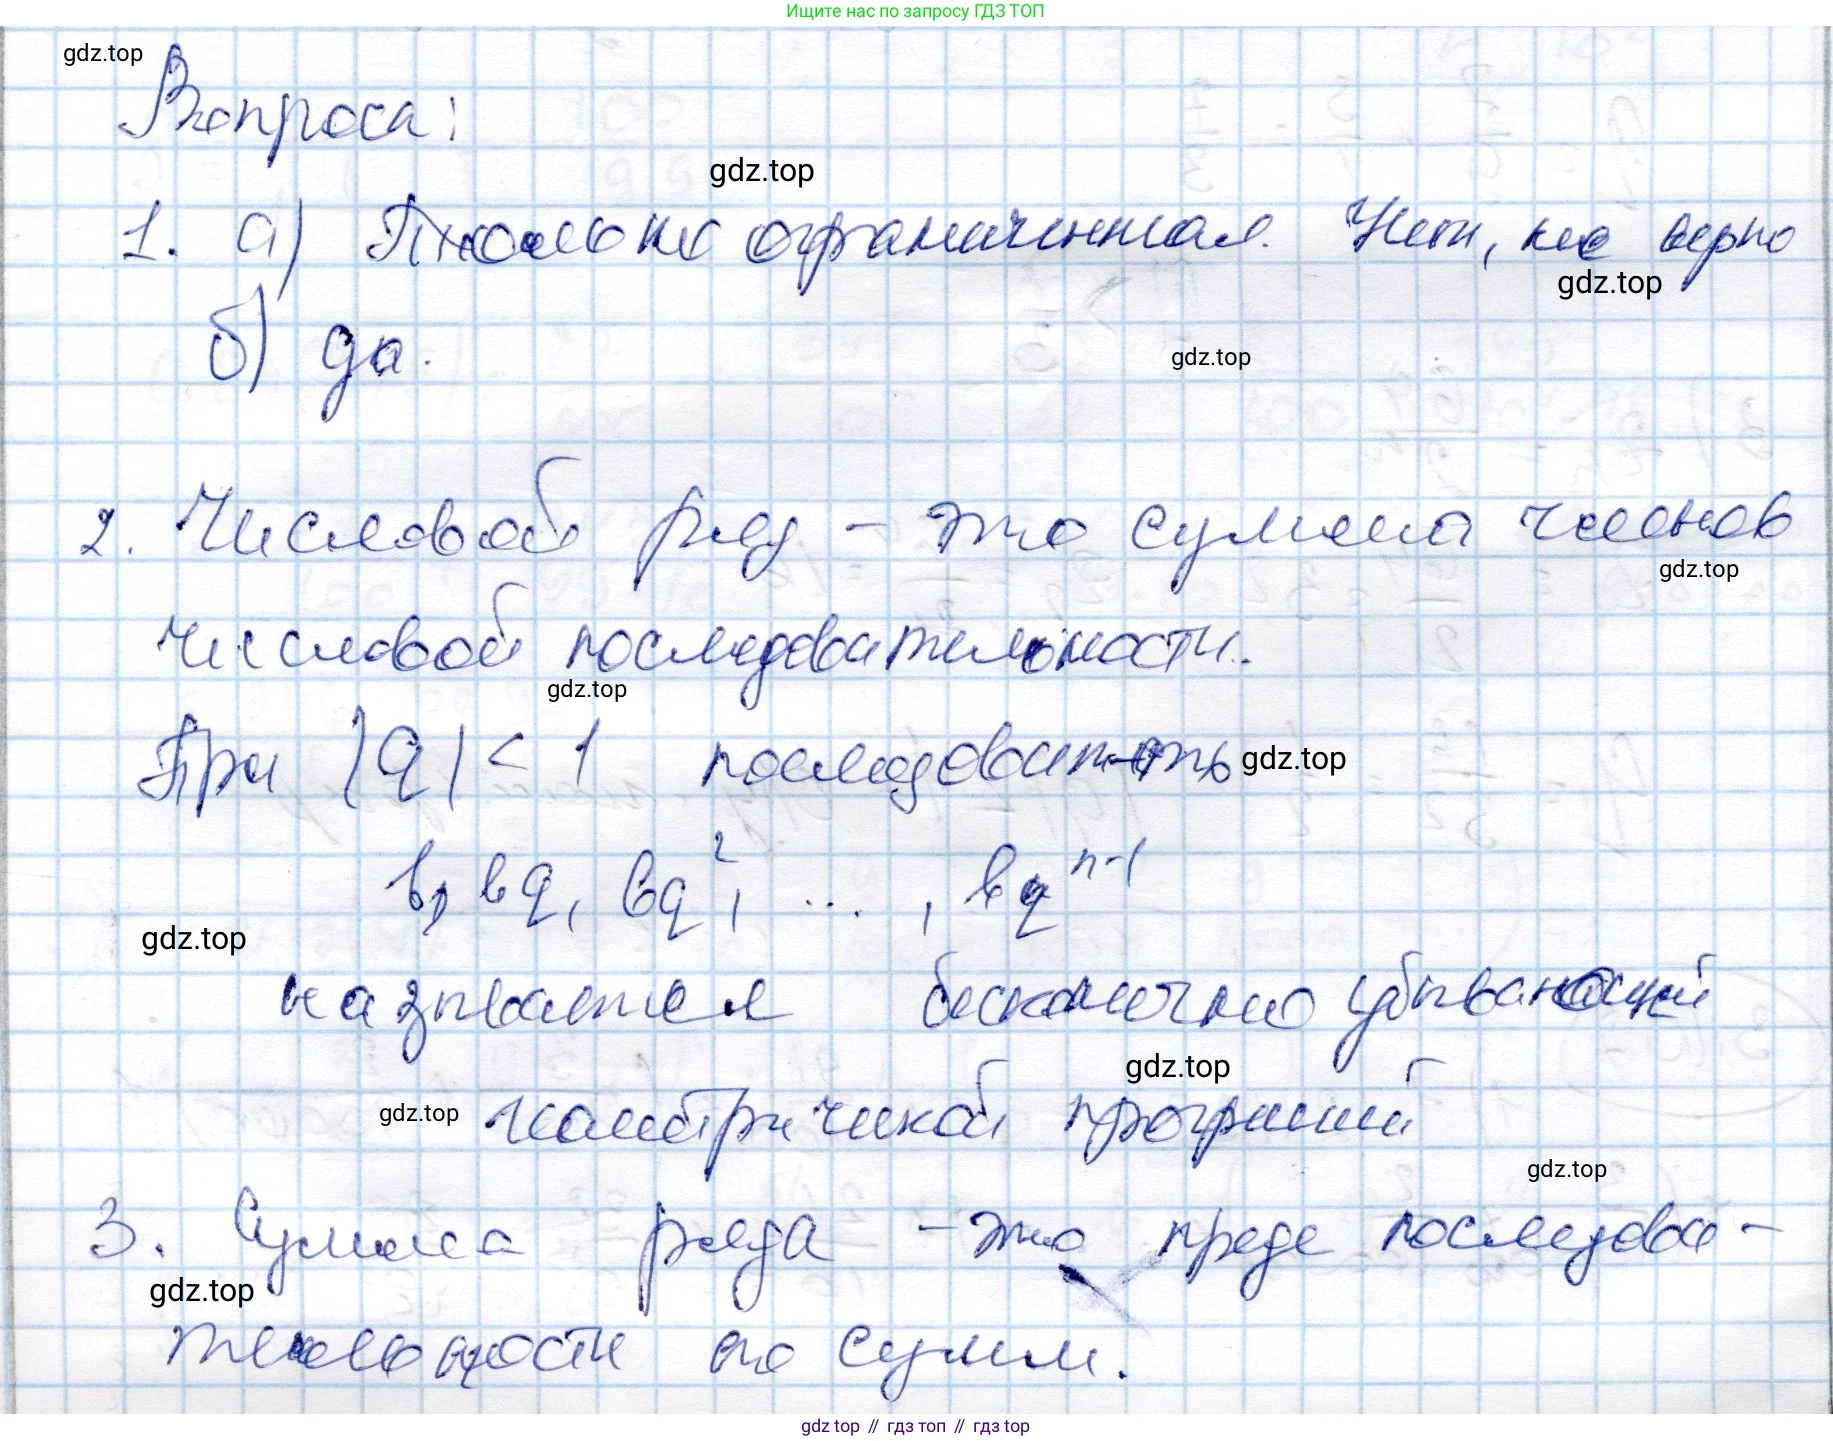 Ищите нас по запросу ГДЗ ТОП
gdz.top
Вопроса:
gdz.top
1. а) Только ограниченная. Нет, не верно
gdz.top
б) да.
gdz.top
2. Числовой ряд - это сумма членов
gdz.top
числовой последовательности.
gdz.top
При |q| < 1 последоват-ть
gdz.top
b, bq, bq², ..., bq^{n-1}
gdz.top
называется бесконечно убывающей
gdz.top
gdz.top
геометрической прогрессией
gdz.top
3. Сумма ряда - это преде последова-
gdz.top
тельности по сумм.
gdz.top // гдз топ // гдз top